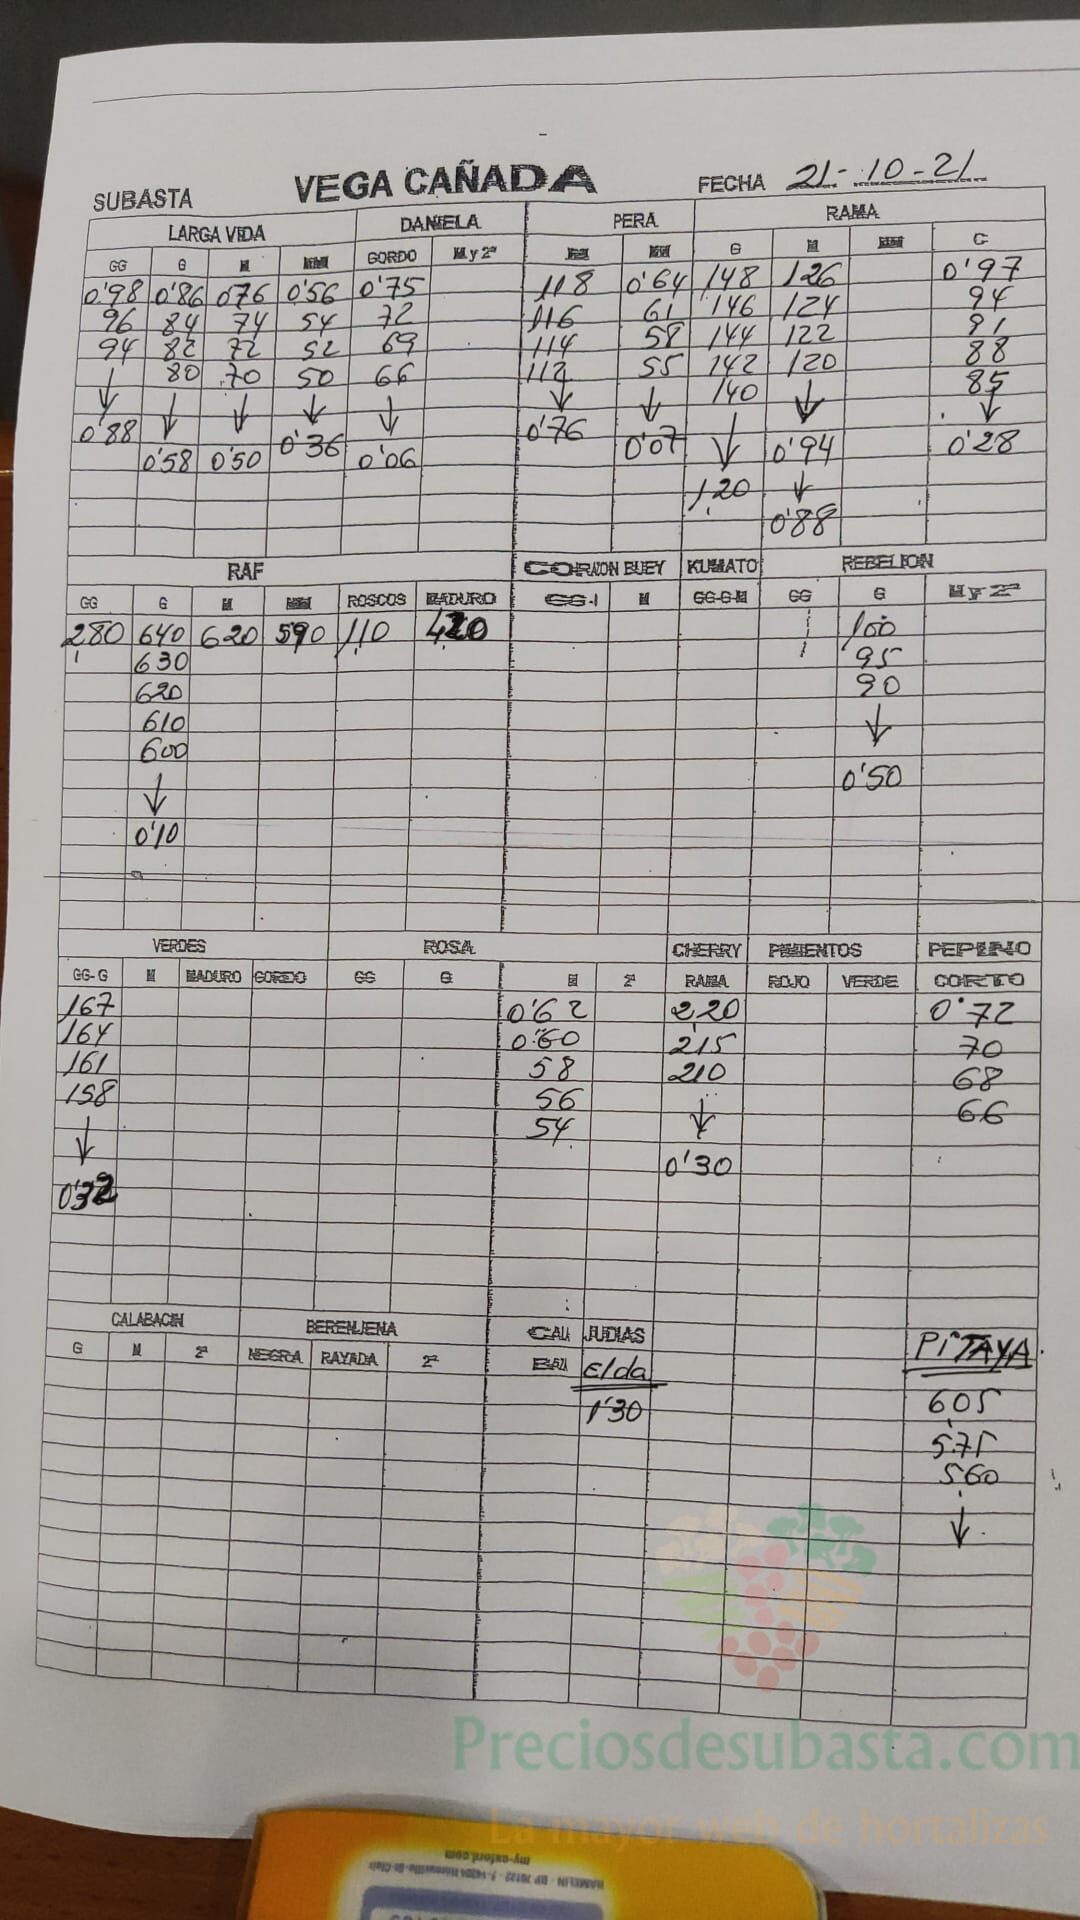 SUBASTA VEGA CAÑADA FECHA 21-10-21
LARGA VIDA DANIELA PERA RAMA
GG G M MM GORDO M y 2ª M MM G M MM C
0'98 0'86 076 0'56 0'75 118 0'64 148 126 0'97
96 84 74 54 72 116 61 146 124 94
94 82 72 52 69 114 58 144 122 91
↓ 80 70 50 66 112 55 142 120 88
↓ ↓ ↓ ↓ ↓ ↓ 140 ↓ 85
0'88 0'36 0'76 0'07 ↓ 0'94 ↓
0'58 0'50 0'06 0'28
1,20 ↓
0'88
RAF CORAZON BUEY KUMATO REBELION
GG G M MM ROSCOS MADURO GG-1 M GG-G-M GG G M y 2ª
280 640 620 590 110 420 100
630 95
620 90
610 ↓
600 0'50
↓
0'10
VERDES ROSA CHERRY PIMIENTOS PEPINO
GG-G M MADURO GORDO GG G M 2ª RAMA ROJO VERDE CORTO
167 0'62 220 0'72
164 0'60 215 70
161 58 210 68
158 56 ↓ 66
↓ 54 0'30
0'32
CALABACIN BERENJENA CALA JUDIAS PiTAYA
G M 2ª NEGRA RAYADA 2ª BAZA Elda
1'30 605
575
560
↓
Preciosdesubasta.com
La mayor web de hortalizas
my-oxford.com